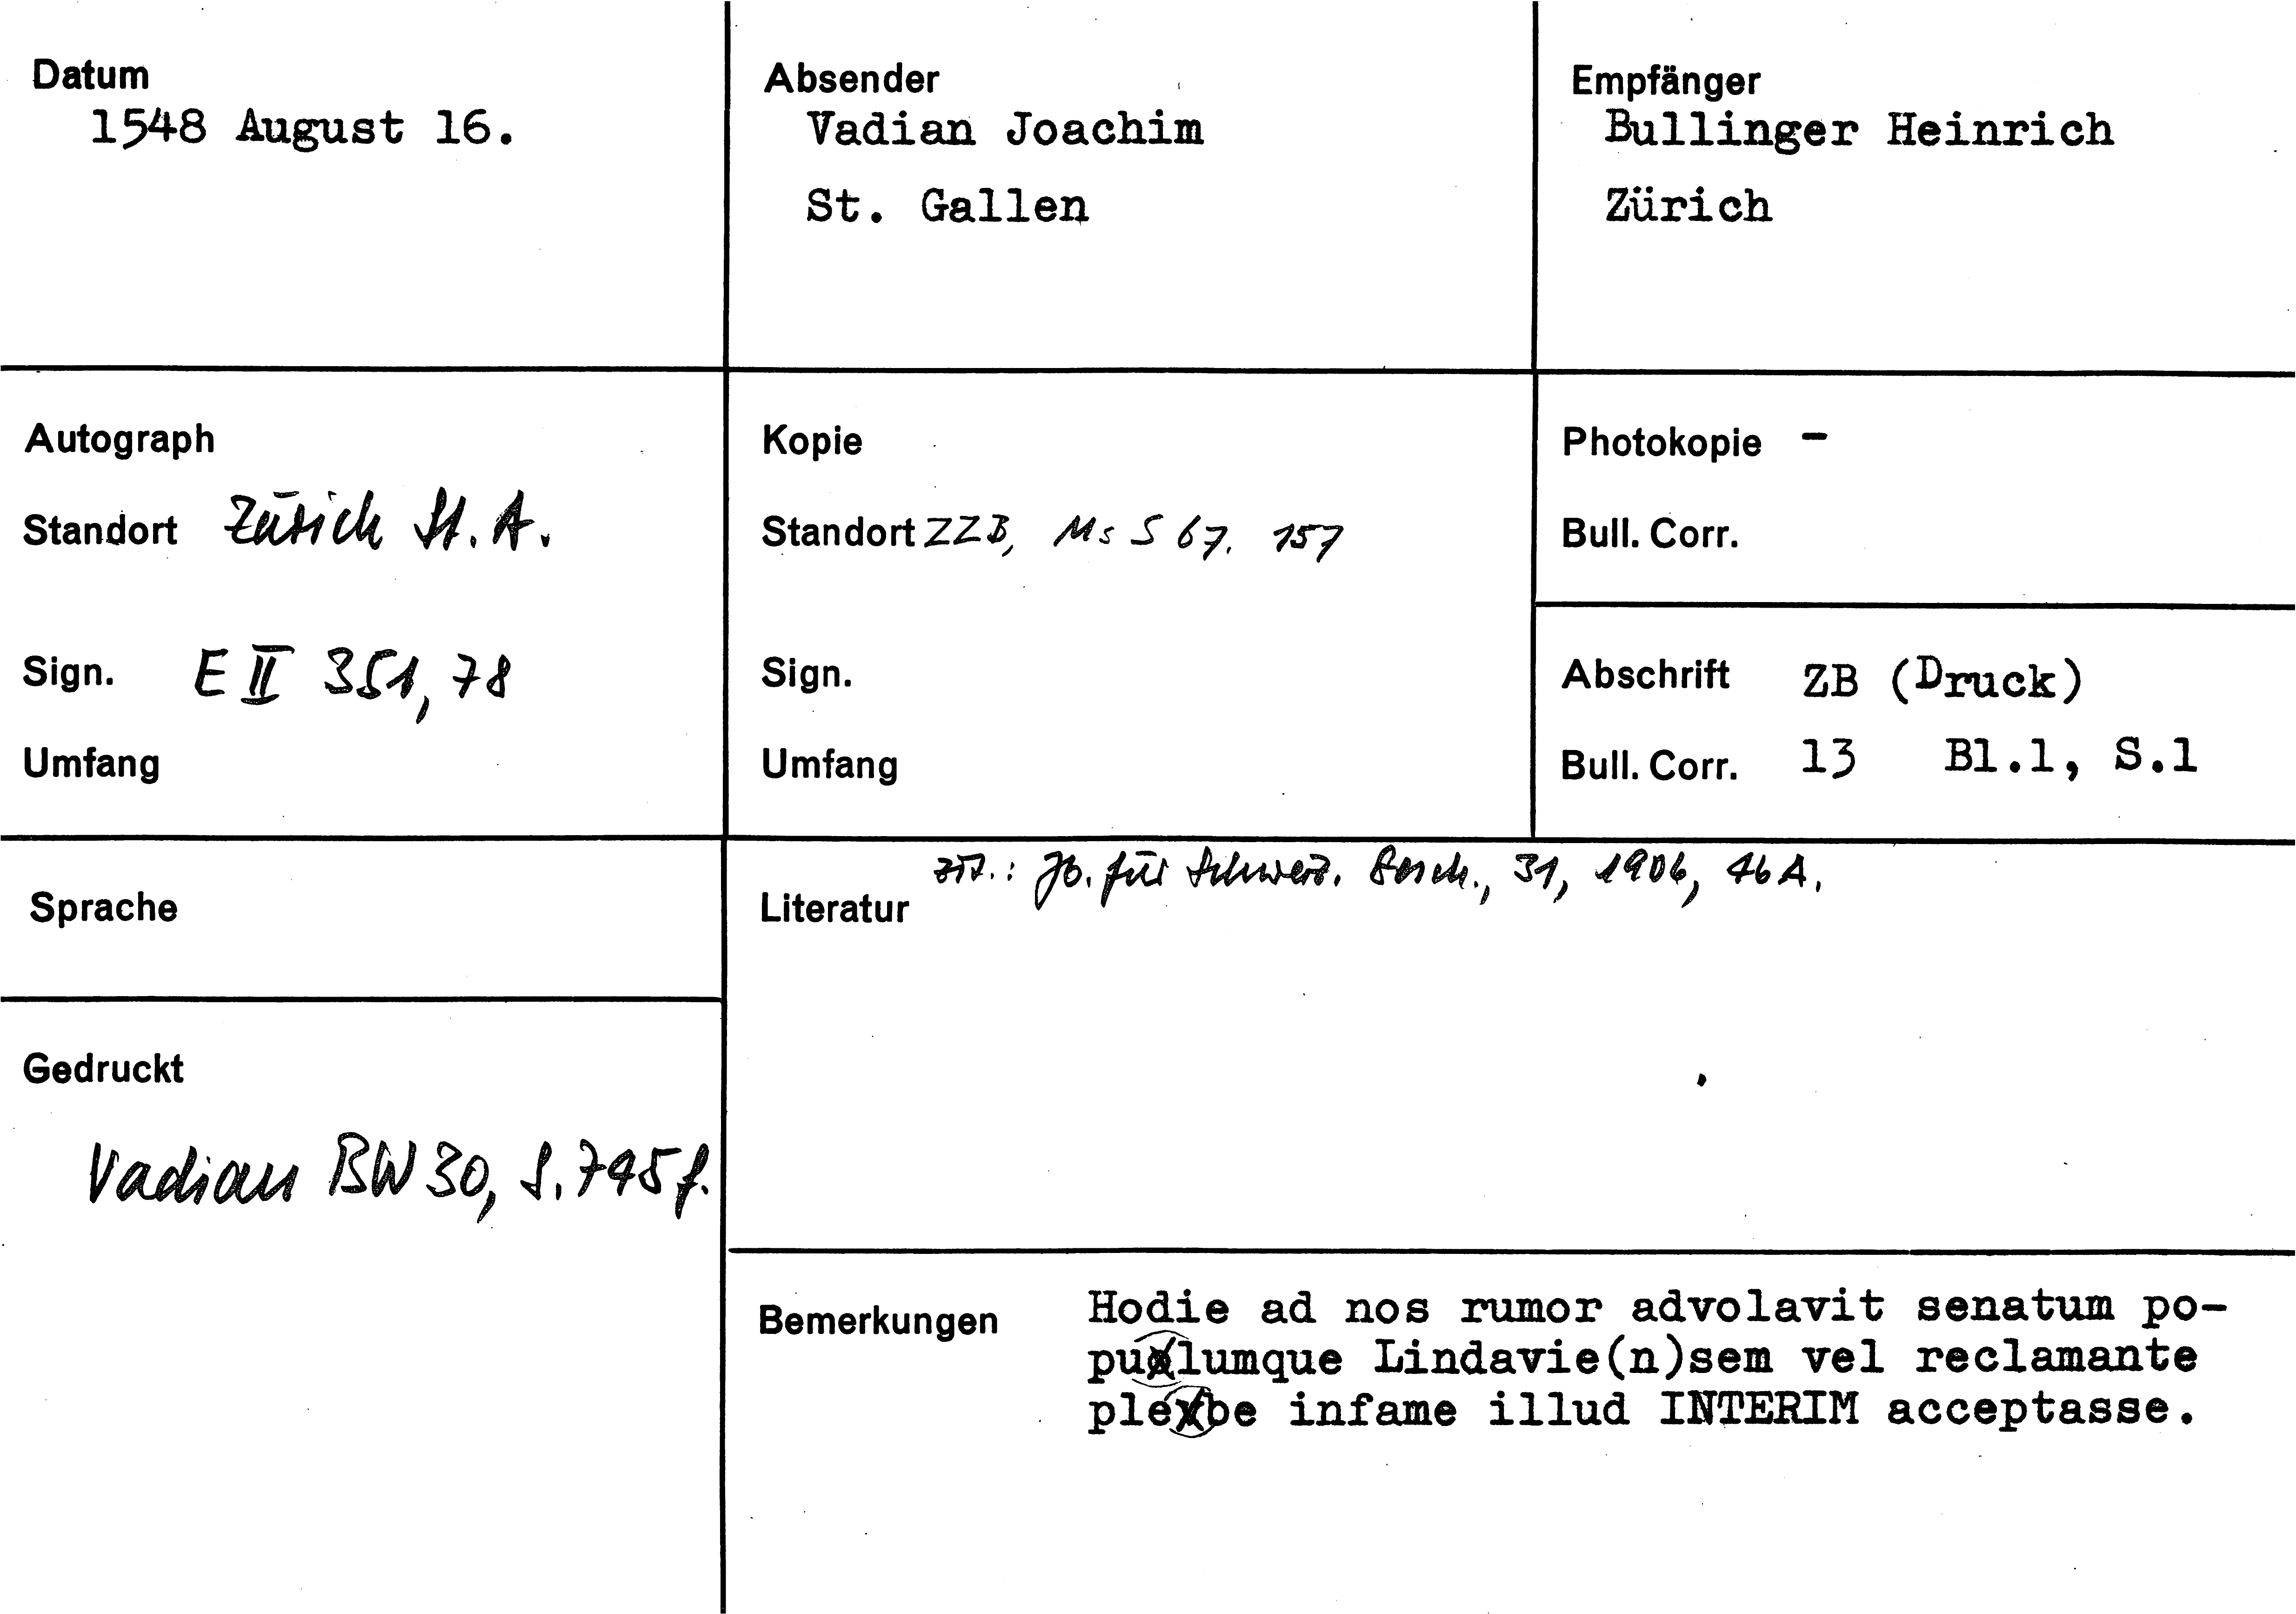 Datum
1548 August 16.
Absender
Vadian Joachim
St. Gallen
Empfänger
Bullinger Heinrich
Zürich
Autograph
Standort Zürich St. A.
Sign. E II 351, 78
Umfang
Kopie
Standort ZZB, Ms S 67. 157
Sign.
Umfang
Photokopie -
Bull. Corr.
Abschrift ZB (Druck)
Bull. Corr. 13 Bl.1, S.1
Sprache
Gedruckt
Vadian BW 30, S. 745 f.
zit.: Jb. für Schweiz. Gesch., 31, 1906, 46 A.
Literatur
Bemerkungen
Hodie ad nos rumor advolavit senatum po-
pulumque Lindavie(n)sem vel reclamante
plebe infame illud INTERIM acceptasse.